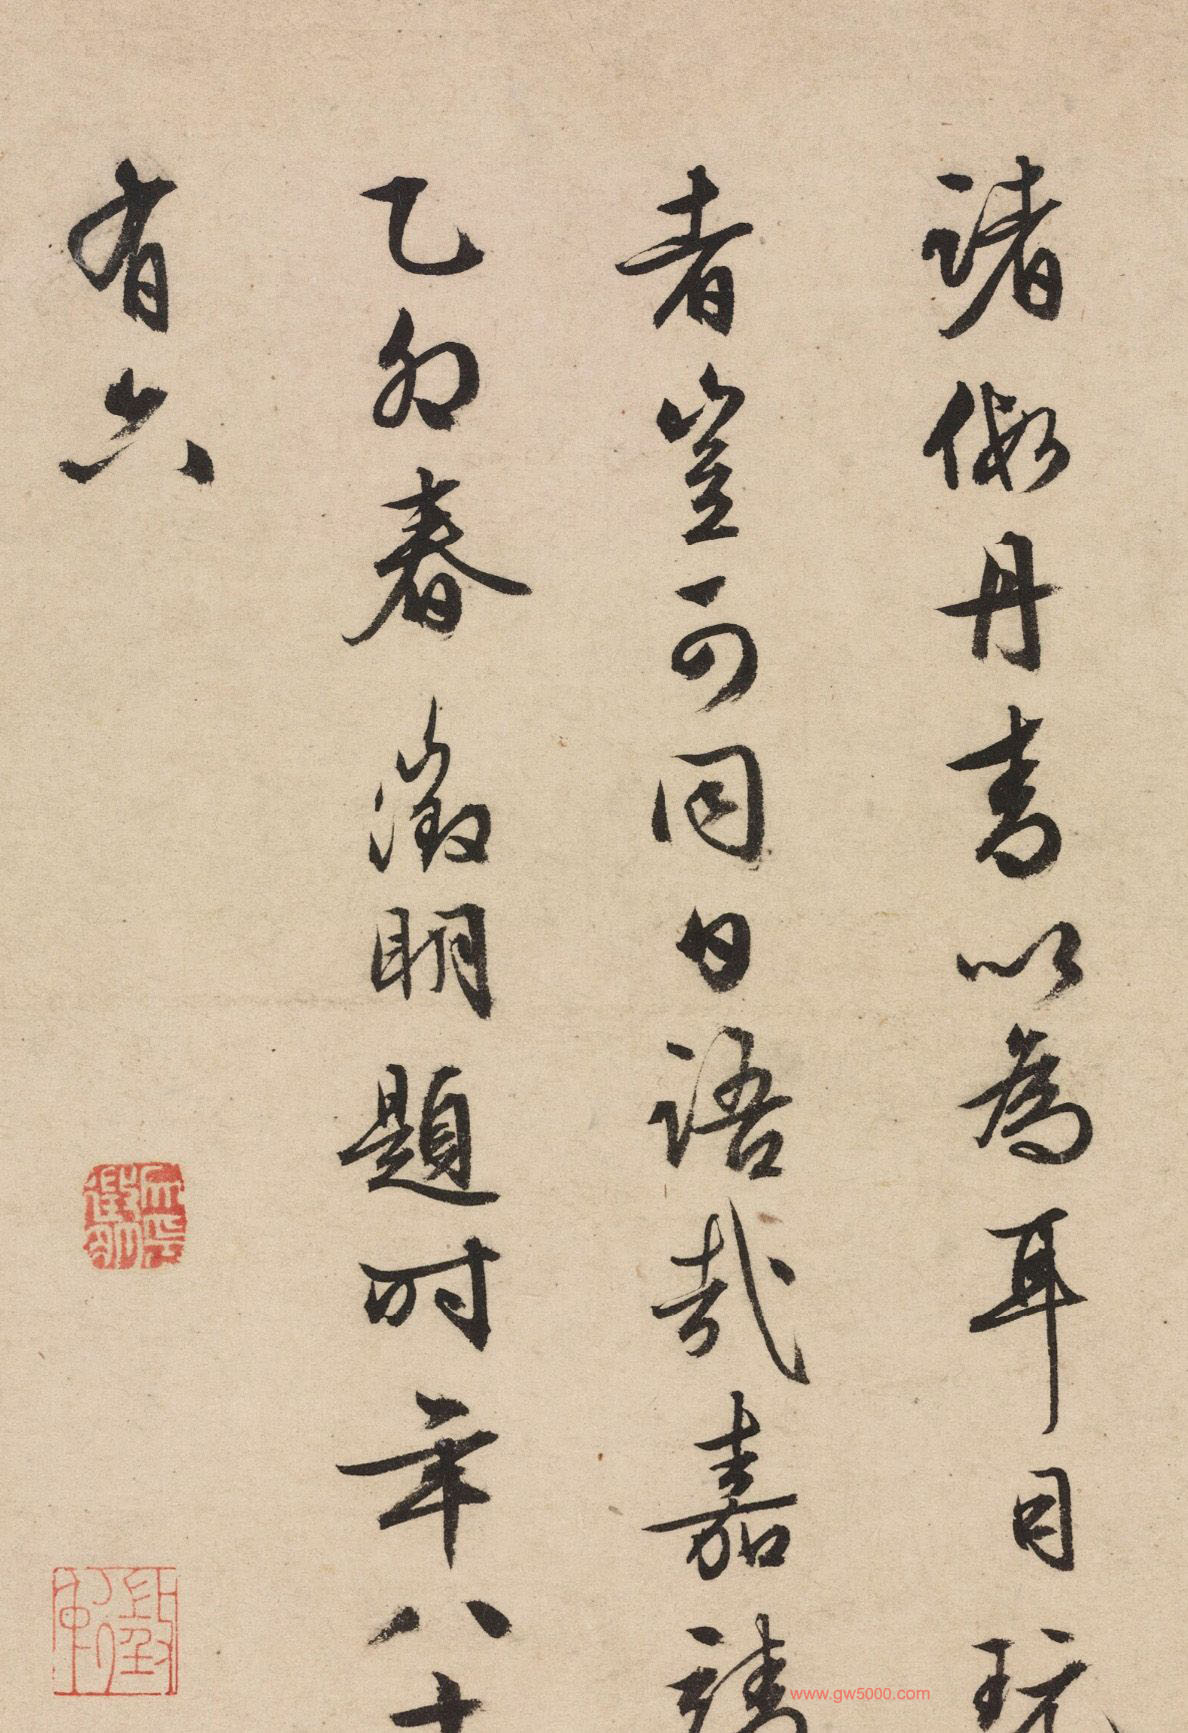 諸假丹青以為耳目玩
者豈可同日語哉嘉靖
乙卯春徵明題時年八十
有六
徵明
www.gw5000.com